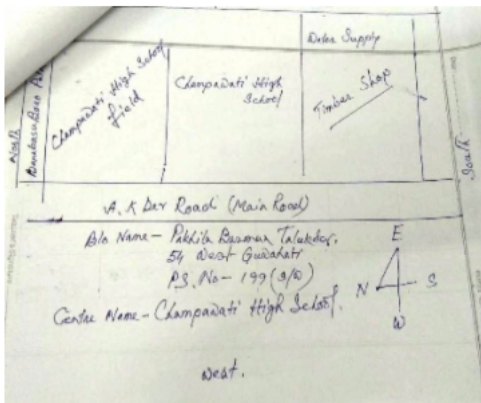 Water Supply
North
Champawati High School
field
Champawati High
School
Timber Shop
South
A. K Dev Road (Main Road)
Blo Name - Pakhila Barman Talukdar.
54 West Guwahati
P.S. No - 199 (S/W)
Centre Name - Champawati High School.
E
N
S
W
West.